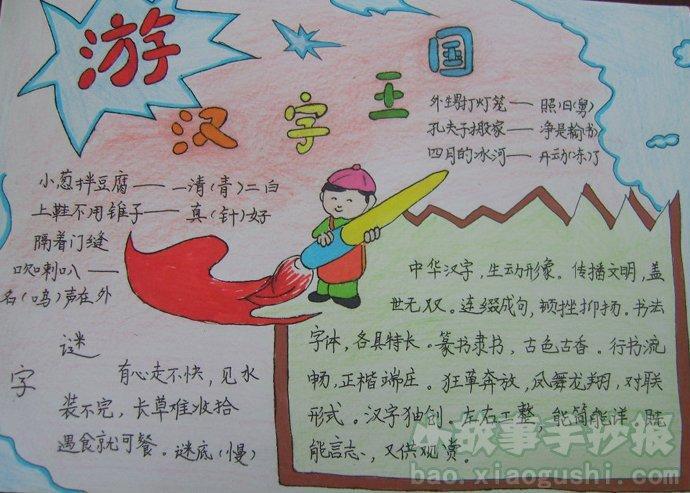 游
汉字王国
外甥打灯笼——照旧(舅)
孔夫子搬家——净是输(书)
四月的冰河——开动(冻)了
小葱拌豆腐——一清(青)二白
上鞋不用锥子——真(针)好
隔着门缝
吹喇叭——
名(鸣)声在外
字谜
有心走不快，见水
装不完，长草难收拾
遇食就可餐。谜底(慢)
中华汉字，生动形象。传播文明，盖
世无双。连缀成句，顿挫抑扬。书法
字体，各具特长。篆书隶书，古色古香。行书流
畅，正楷端庄。狂草奔放，凤舞龙翔，对联
形式。汉字独创。左右工整，能简能洋。既
能言志，又供观赏。
小故事手抄报
bao.xiaogushi.com